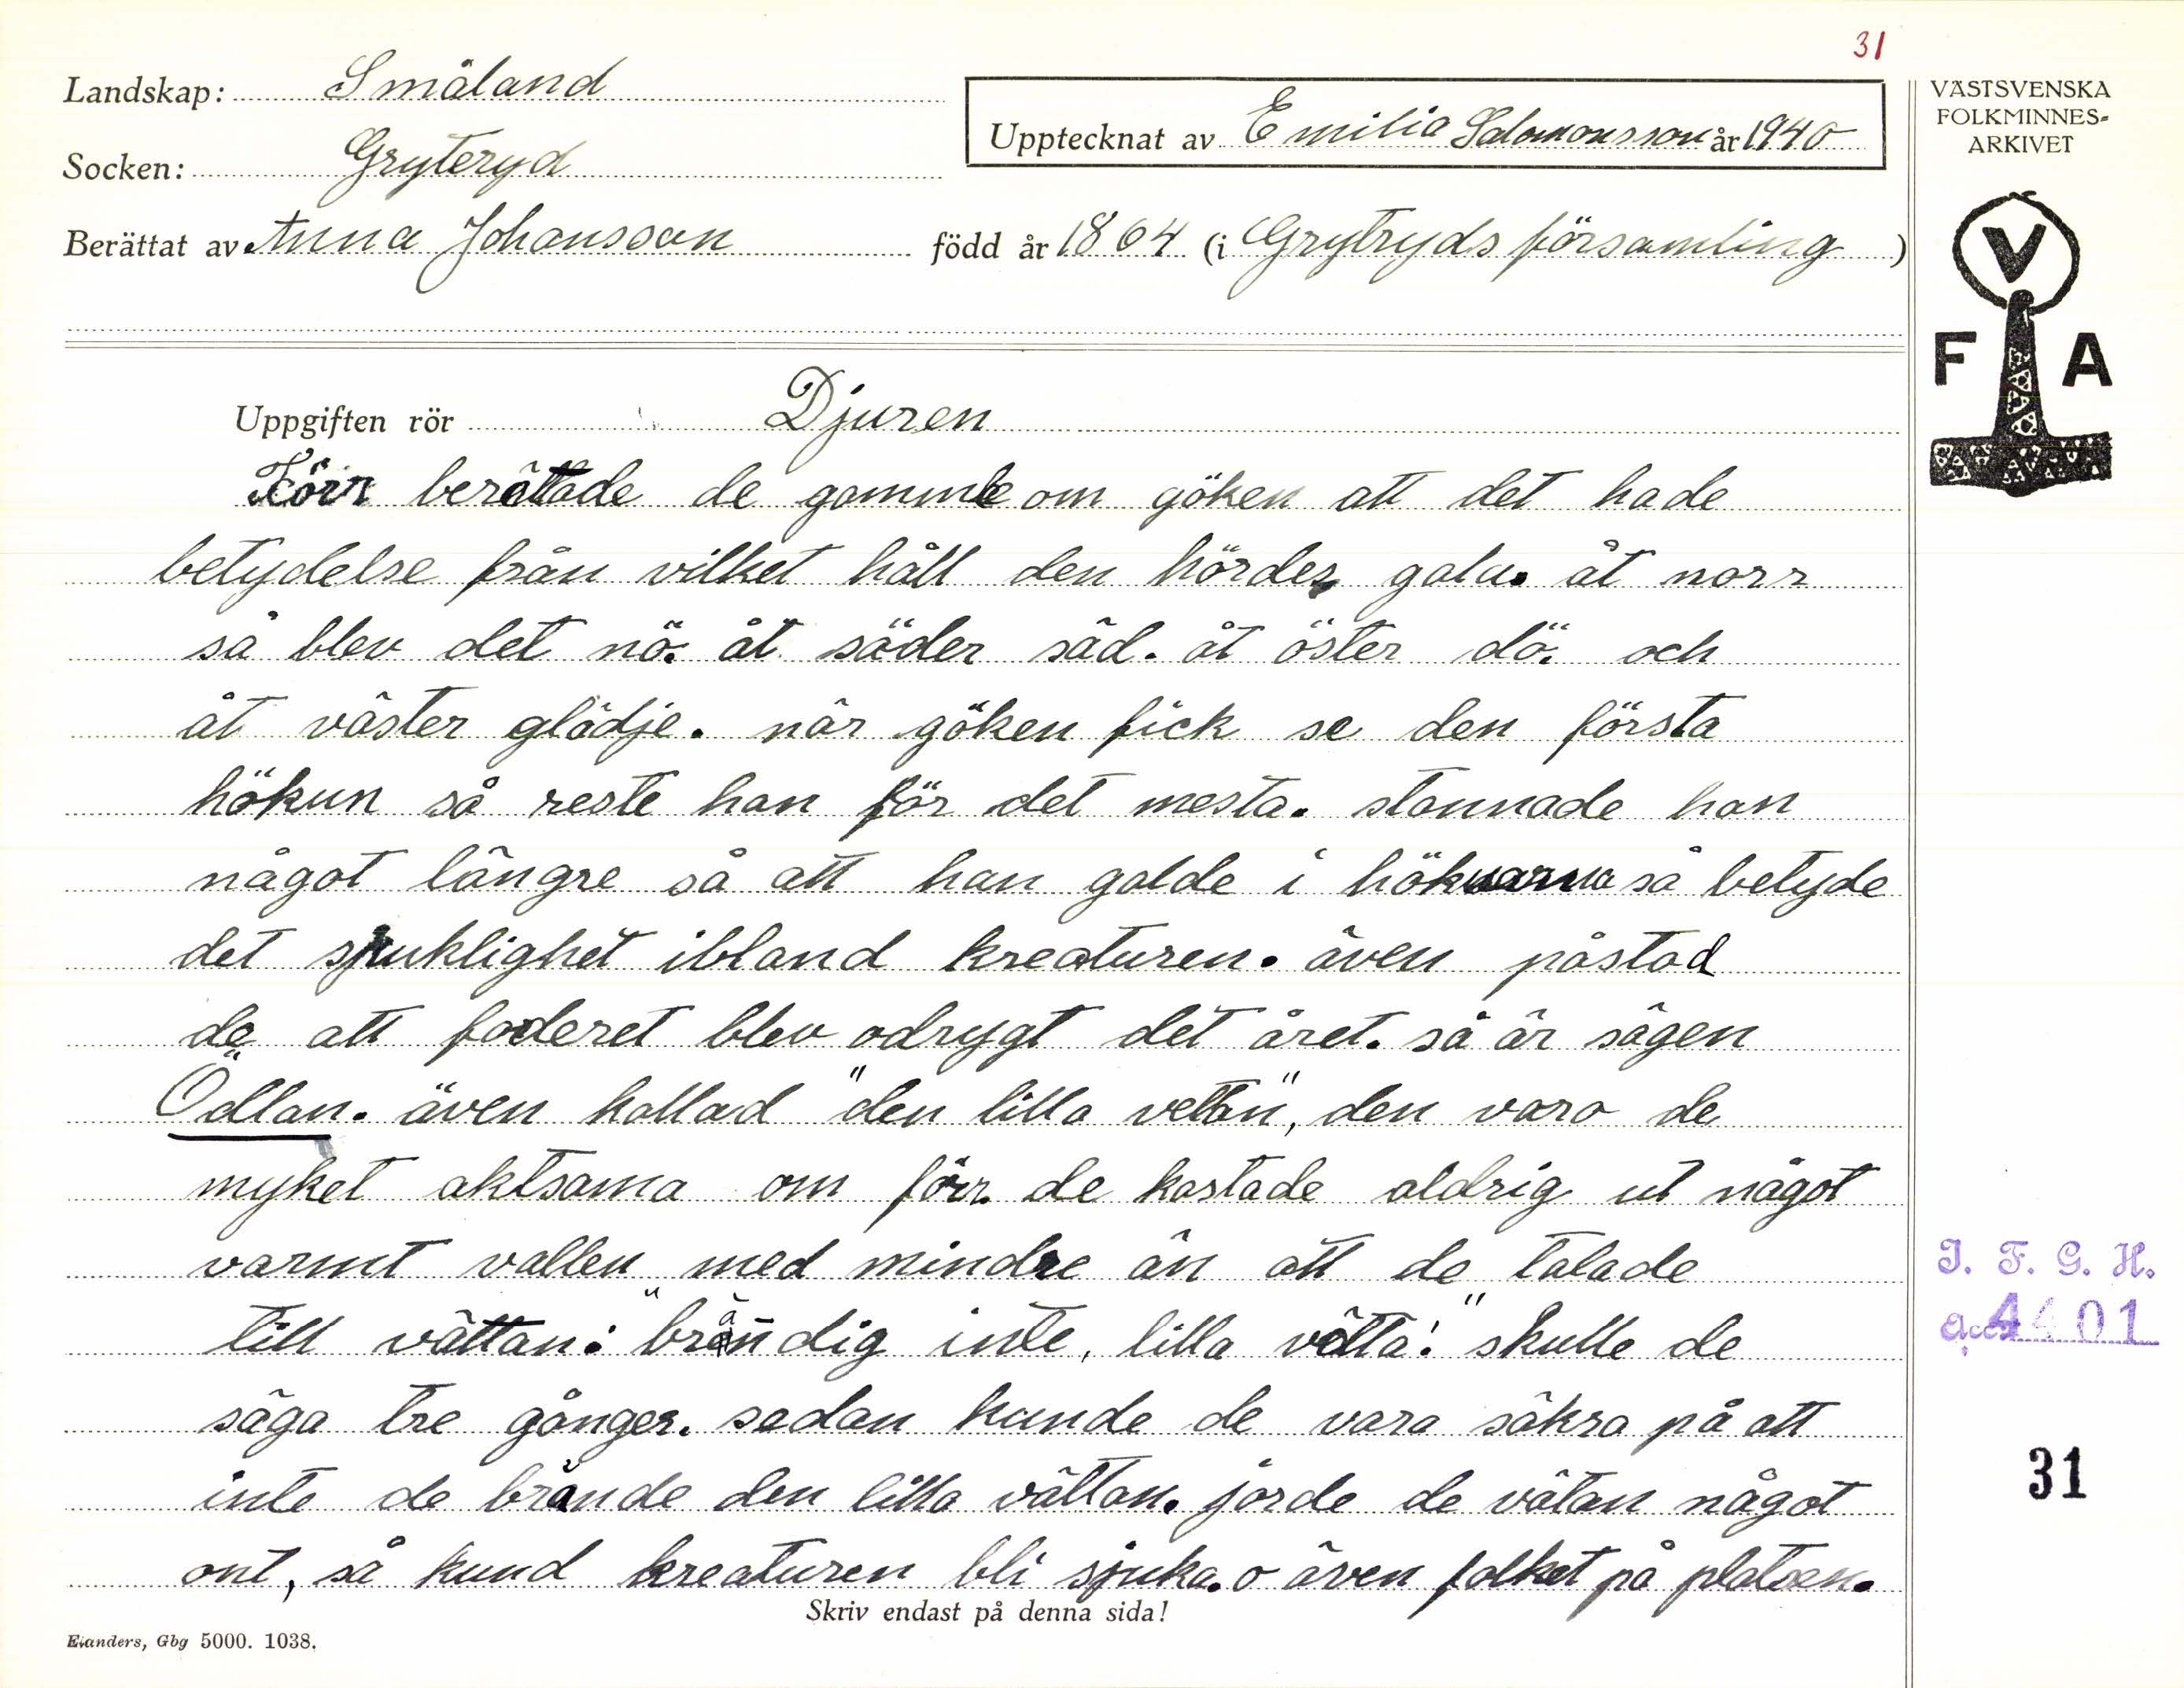 31
Landskap: Småland
Upptecknat av Emilia Salomonsson år 1940
Socken: Gryteryd
Berättat av Anna Johansson född år 1864 (i Grytryds församling)
VÄSTSVENSKA
FOLKMINNES-
ARKIVET
V
F A
Uppgiften rör Djuren
Förr berättade de gammle om göken att det hade
betydelse från vilket håll den hördes gala. åt norr
så blev det nö. åt söder säd. åt öster dö. och
åt väster glädje. när göken fick se den första
hökun så reste han för det mesta. stannade han
något längre så att han golde i hökuarna så betyde
det sjuklighet ibland kreaturen. även påstod
de att foderet blev odrygt det året. så är sägen
Ödlan. även kallad "den lilla vettan", den vara de
myket aktsama om förr. de kastade aldrig ut något
varmt vatten med mindre än att de talade
till vättan: "bränn dig inte, lilla vätta!" skulle de
säga tre gånger. sedan kunde de vara säkra på att
inte de brände den lilla vättan. jorde de vätan något
ont, så kund kreaturen bli sjuka. o även folket på platsen.
J. F. G. H.
Acc. 4601
31
Skriv endast på denna sida!
Elanders, Gbg 5000. 1038.